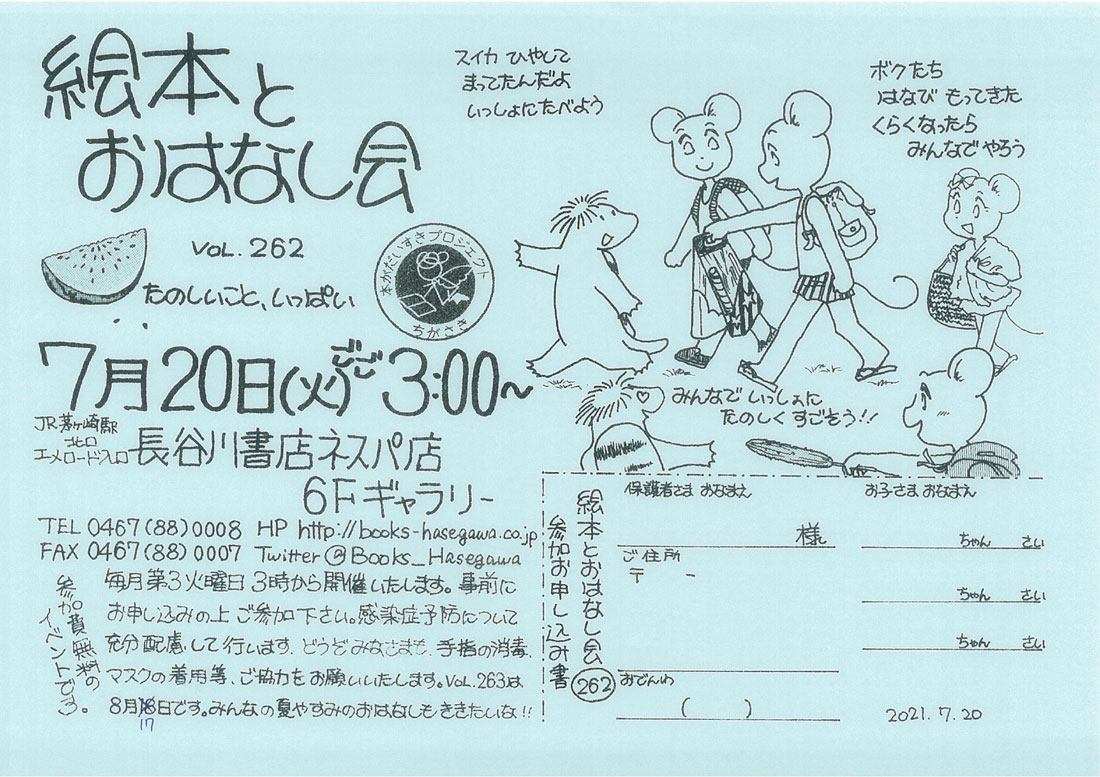 絵本と
おはなし会
VOL.262
たのしいこと、いっぱい
本がだいすきプロジェクト
ちがさき
スイカ ひやして
まってたんだよ
いっしょにたべよう
ボクたち
はなび もってきた
くらくなったら
みんなでやろう
みんなで いっしょに
たのしく すごそう!!
7月20日(火)ごご3:00~
JR茅ヶ崎駅
北口
エメロード入口
長谷川書店ネスパ店
6Fギャラリー
TEL 0467(88)0008 HP http://books-hasegawa.co.jp
FAX 0467(88)0007 Twitter@Books_Hasegawa
参加費無料の
イベントです。
毎月第3火曜日3時から開催いたします。事前に
お申し込みの上ご参加下さい。感染症予防について
充分配慮して行います。どうぞみなさまも、手指の消毒、
マスクの着用等、ご協力をお願いいたします。Vol.263は
8月18日です。みんなの夏やすみのおはなしもききたいな!!
17
絵本とおはなし会 262
参加お申し込み書
保護者さま おなまえ
様
ご住所
〒 -
おでんわ
( )
お子さま おなまえ
ちゃん さい
ちゃん さい
ちゃん さい
2021.7.20